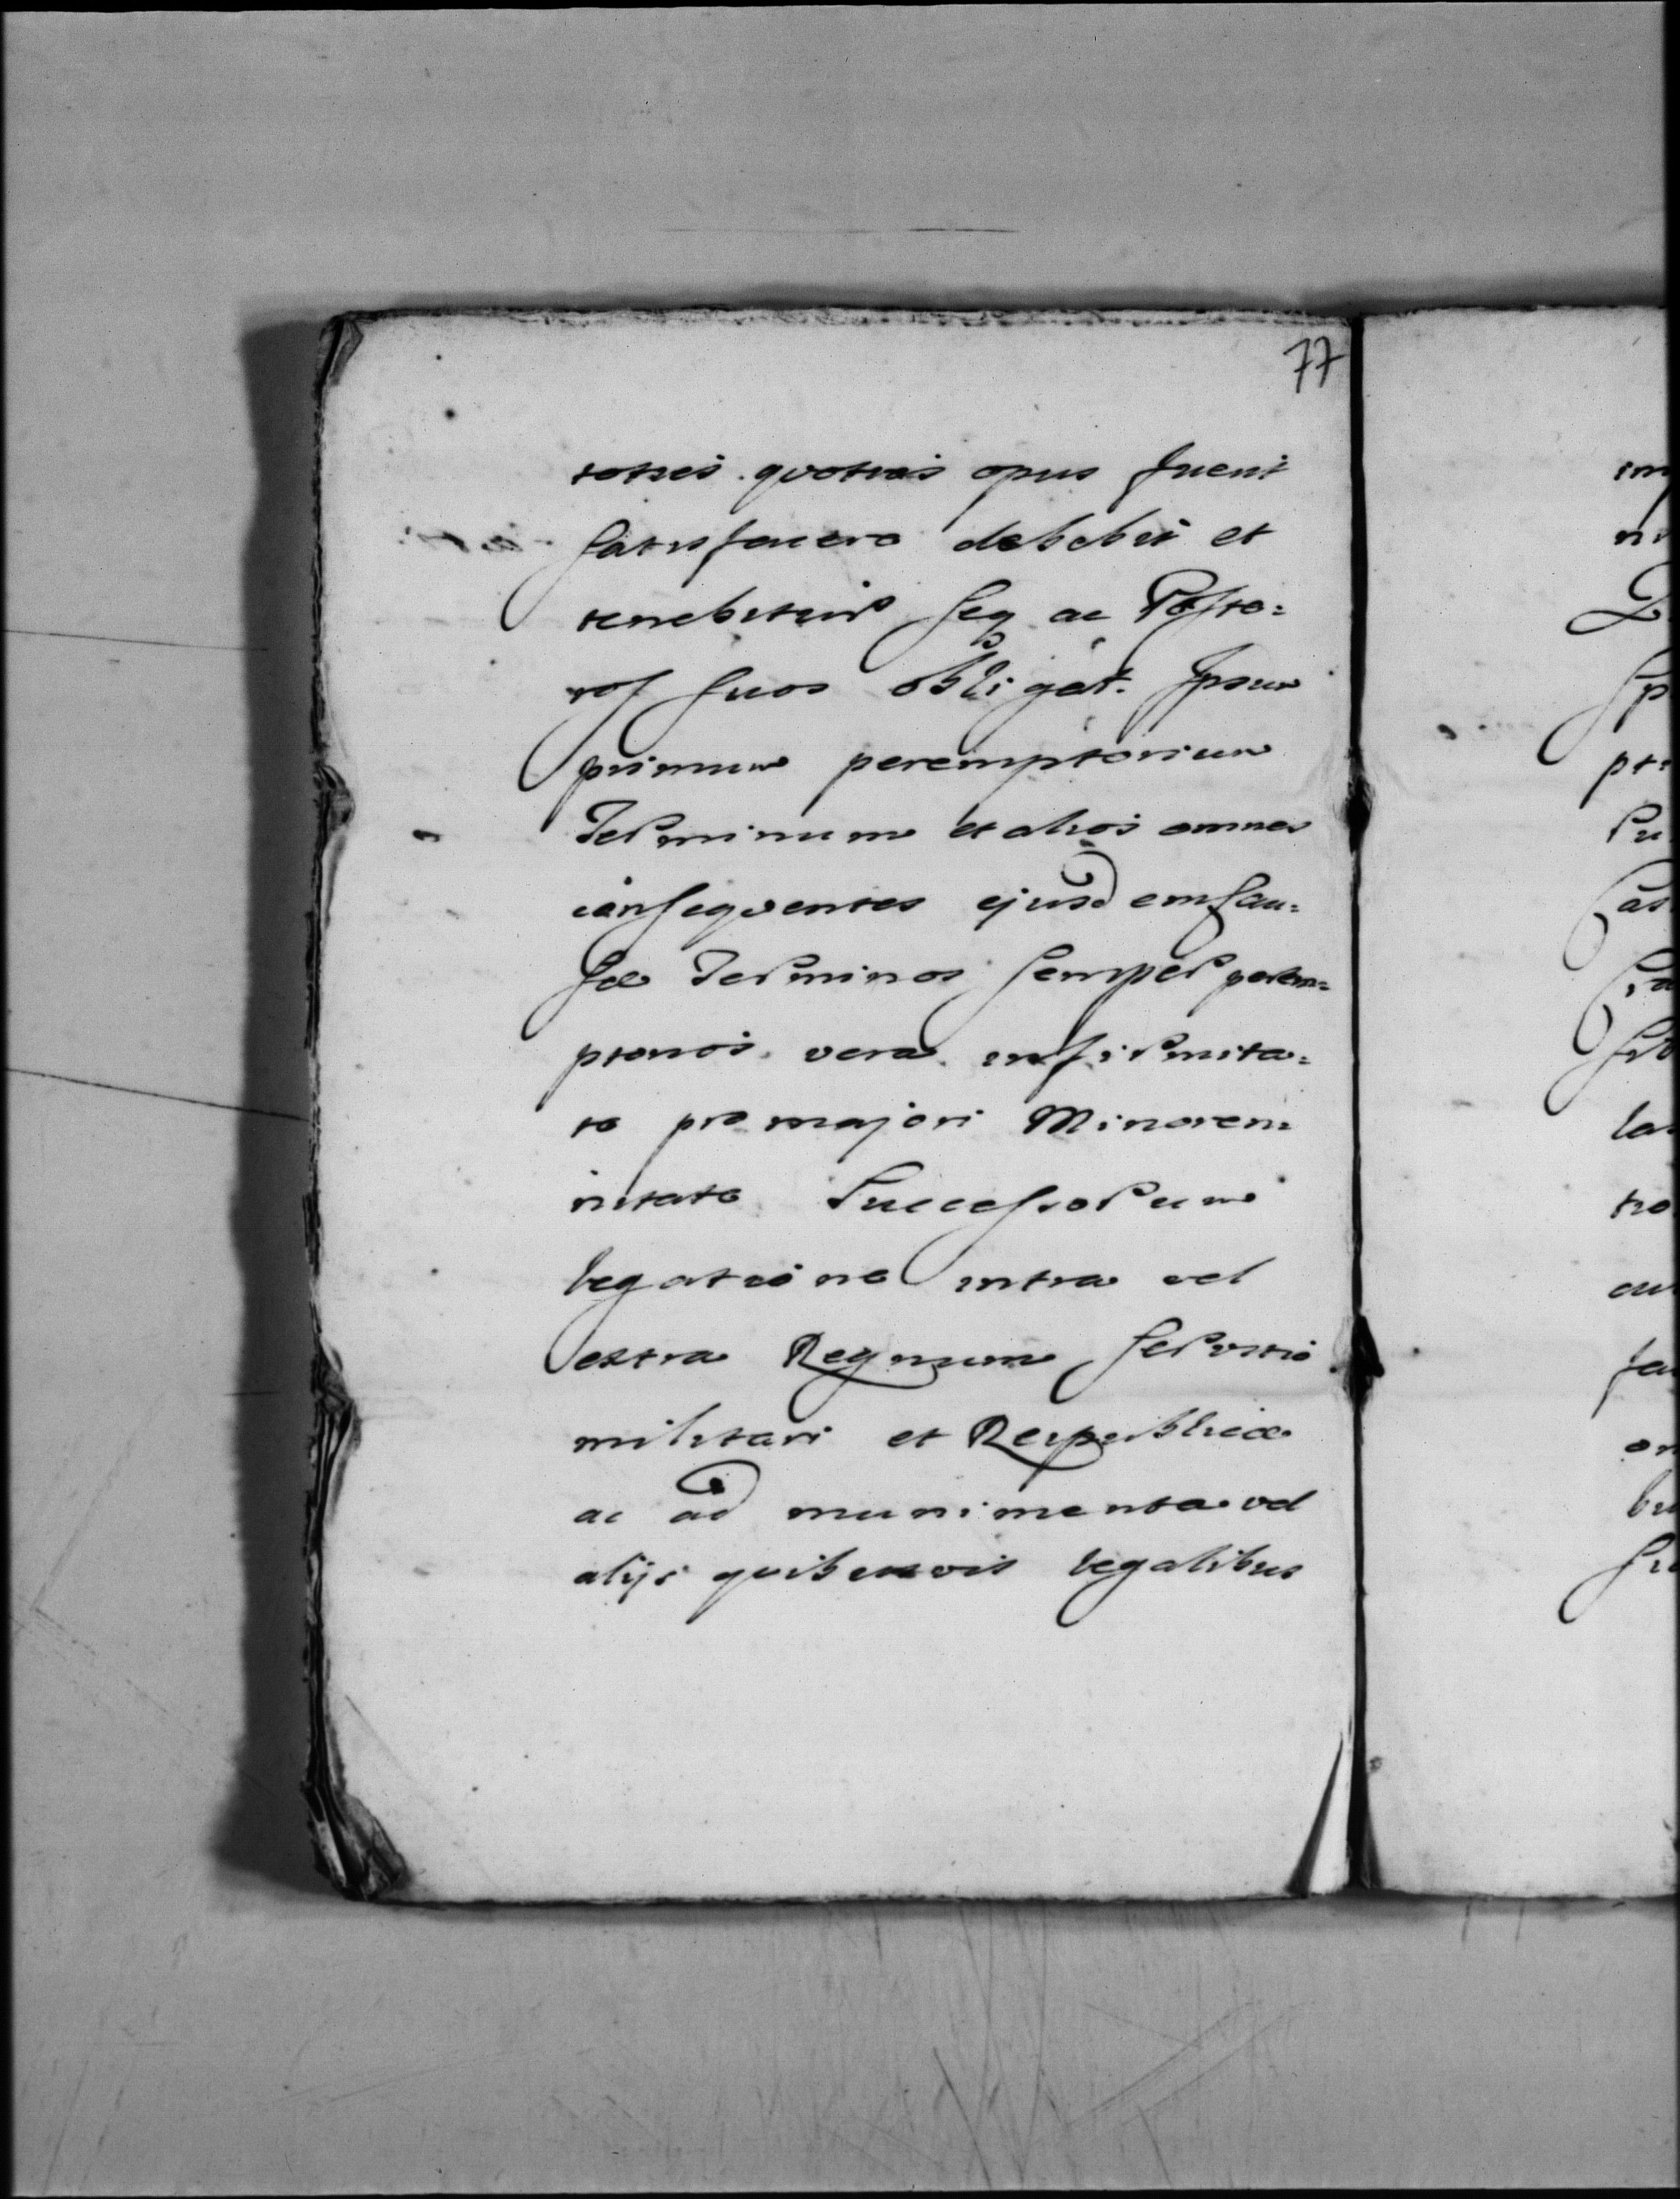 77
toties quoties opus fuerit
satisfacere debebit et
tenebitur seq ac Poste=
ros suos obligat. Ipsum
primum peremptorium
Terminum et alios omnes
consequentes ejusdem cau=
sæ Terminos semper perem=
ptorios vera infirmita=
te pro majori Minoren=
nitate Successorum
legatione intra vel
extra Regnum servitio
militari et Reipublicæ
ac ad munimenta vel
alijs quibusvis legalibus